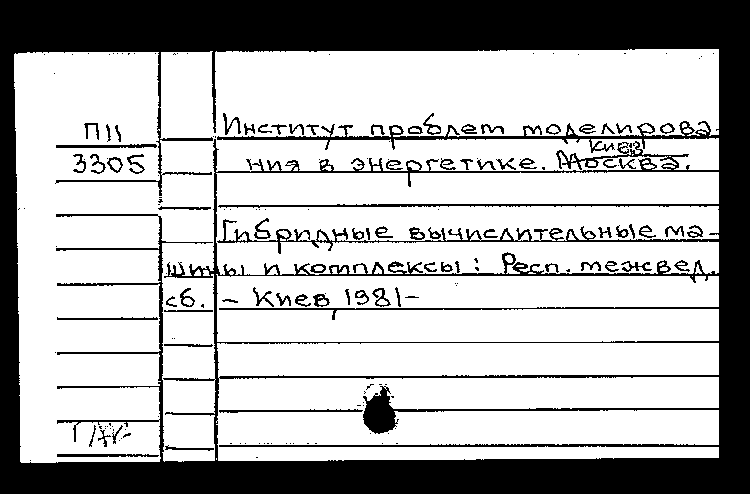 П11
3305
Институт проблем моделирова-
ния в энергетике. Москва.
Киев
Гибридные вычислительные ма-
шины и комплексы: Респ. межвед.
сб. - Киев, 1981-